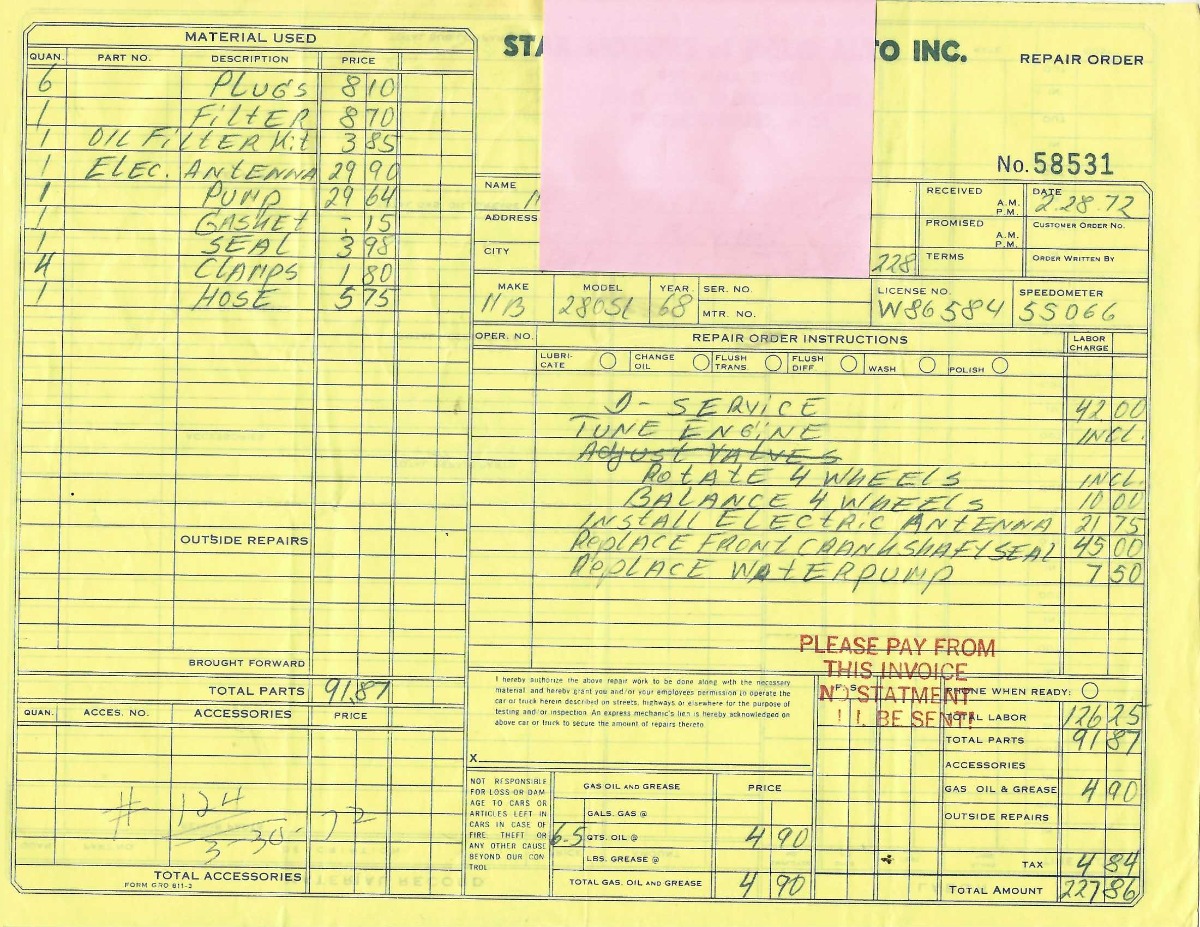 STA
TO INC.
REPAIR ORDER
No. 58531
MATERIAL USED
QUAN. PART NO. DESCRIPTION PRICE
6 PLUGS 8 10
1 FILTER 8 70
1 OIL FILTER Kit 3 85
1 ELEC. ANTENNA 29 90
1 PUMP 29 64
1 GASKET - 15
1 SEAL 3 98
4 CLAMPS 1 80
1 HOSE 5 75
OUTSIDE REPAIRS
BROUGHT FORWARD
TOTAL PARTS 91.87
QUAN. ACCES. NO. ACCESSORIES PRICE
# 124
3-30-72
TOTAL ACCESSORIES
FORM GRO 811-3
NAME
ADDRESS
CITY 228
RECEIVED A.M. P.M.
DATE 2.28.72
PROMISED A.M. P.M.
CUSTOMER ORDER NO.
TERMS
ORDER WRITTEN BY
MAKE MODEL YEAR SER. NO. LICENSE NO. SPEEDOMETER
MB 280SL 68 MTR. NO. W86584 55066
OPER. NO. REPAIR ORDER INSTRUCTIONS LABOR CHARGE
LUBRI-CATE CHANGE OIL FLUSH TRANS. FLUSH DIFF. WASH POLISH
D- SERVICE 42 00
TUNE ENGINE INCL.
Adjust VALVES
ROTATE 4 WHEELS INCL.
BALANCE 4 WHEELS 10 00
INSTALL ELECTRIC ANTENNA 21 75
REPLACE FRONT CRANKSHAFT SEAL 45 00
REPLACE WATERPUMP 7 50
PLEASE PAY FROM
THIS INVOICE
NO STATMENT
BE SENT!
I hereby authorize the above repair work to be done along with the necessary
material, and hereby grant you and/or your employees permission to operate the
car or truck herein described on streets, highways or elsewhere for the purpose of
testing and/or inspection. An express mechanic's lien is hereby acknowledged on
above car or truck to secure the amount of repairs thereto.
X
PHONE WHEN READY:
TOTAL LABOR 126 25
TOTAL PARTS 91 87
ACCESSORIES
GAS OIL & GREASE 4 90
OUTSIDE REPAIRS
TAX 4 84
TOTAL AMOUNT 227 86
NOT RESPONSIBLE
FOR LOSS OR DAM
AGE TO CARS OR
ARTICLES LEFT IN
CARS IN CASE OF
FIRE THEFT OR
ANY OTHER CAUSE
BEYOND OUR CON
TROL
GAS OIL AND GREASE PRICE
GALS. GAS @
6.5 QTS. OIL @ 4 90
LBS. GREASE @
TOTAL GAS. OIL AND GREASE 4 90